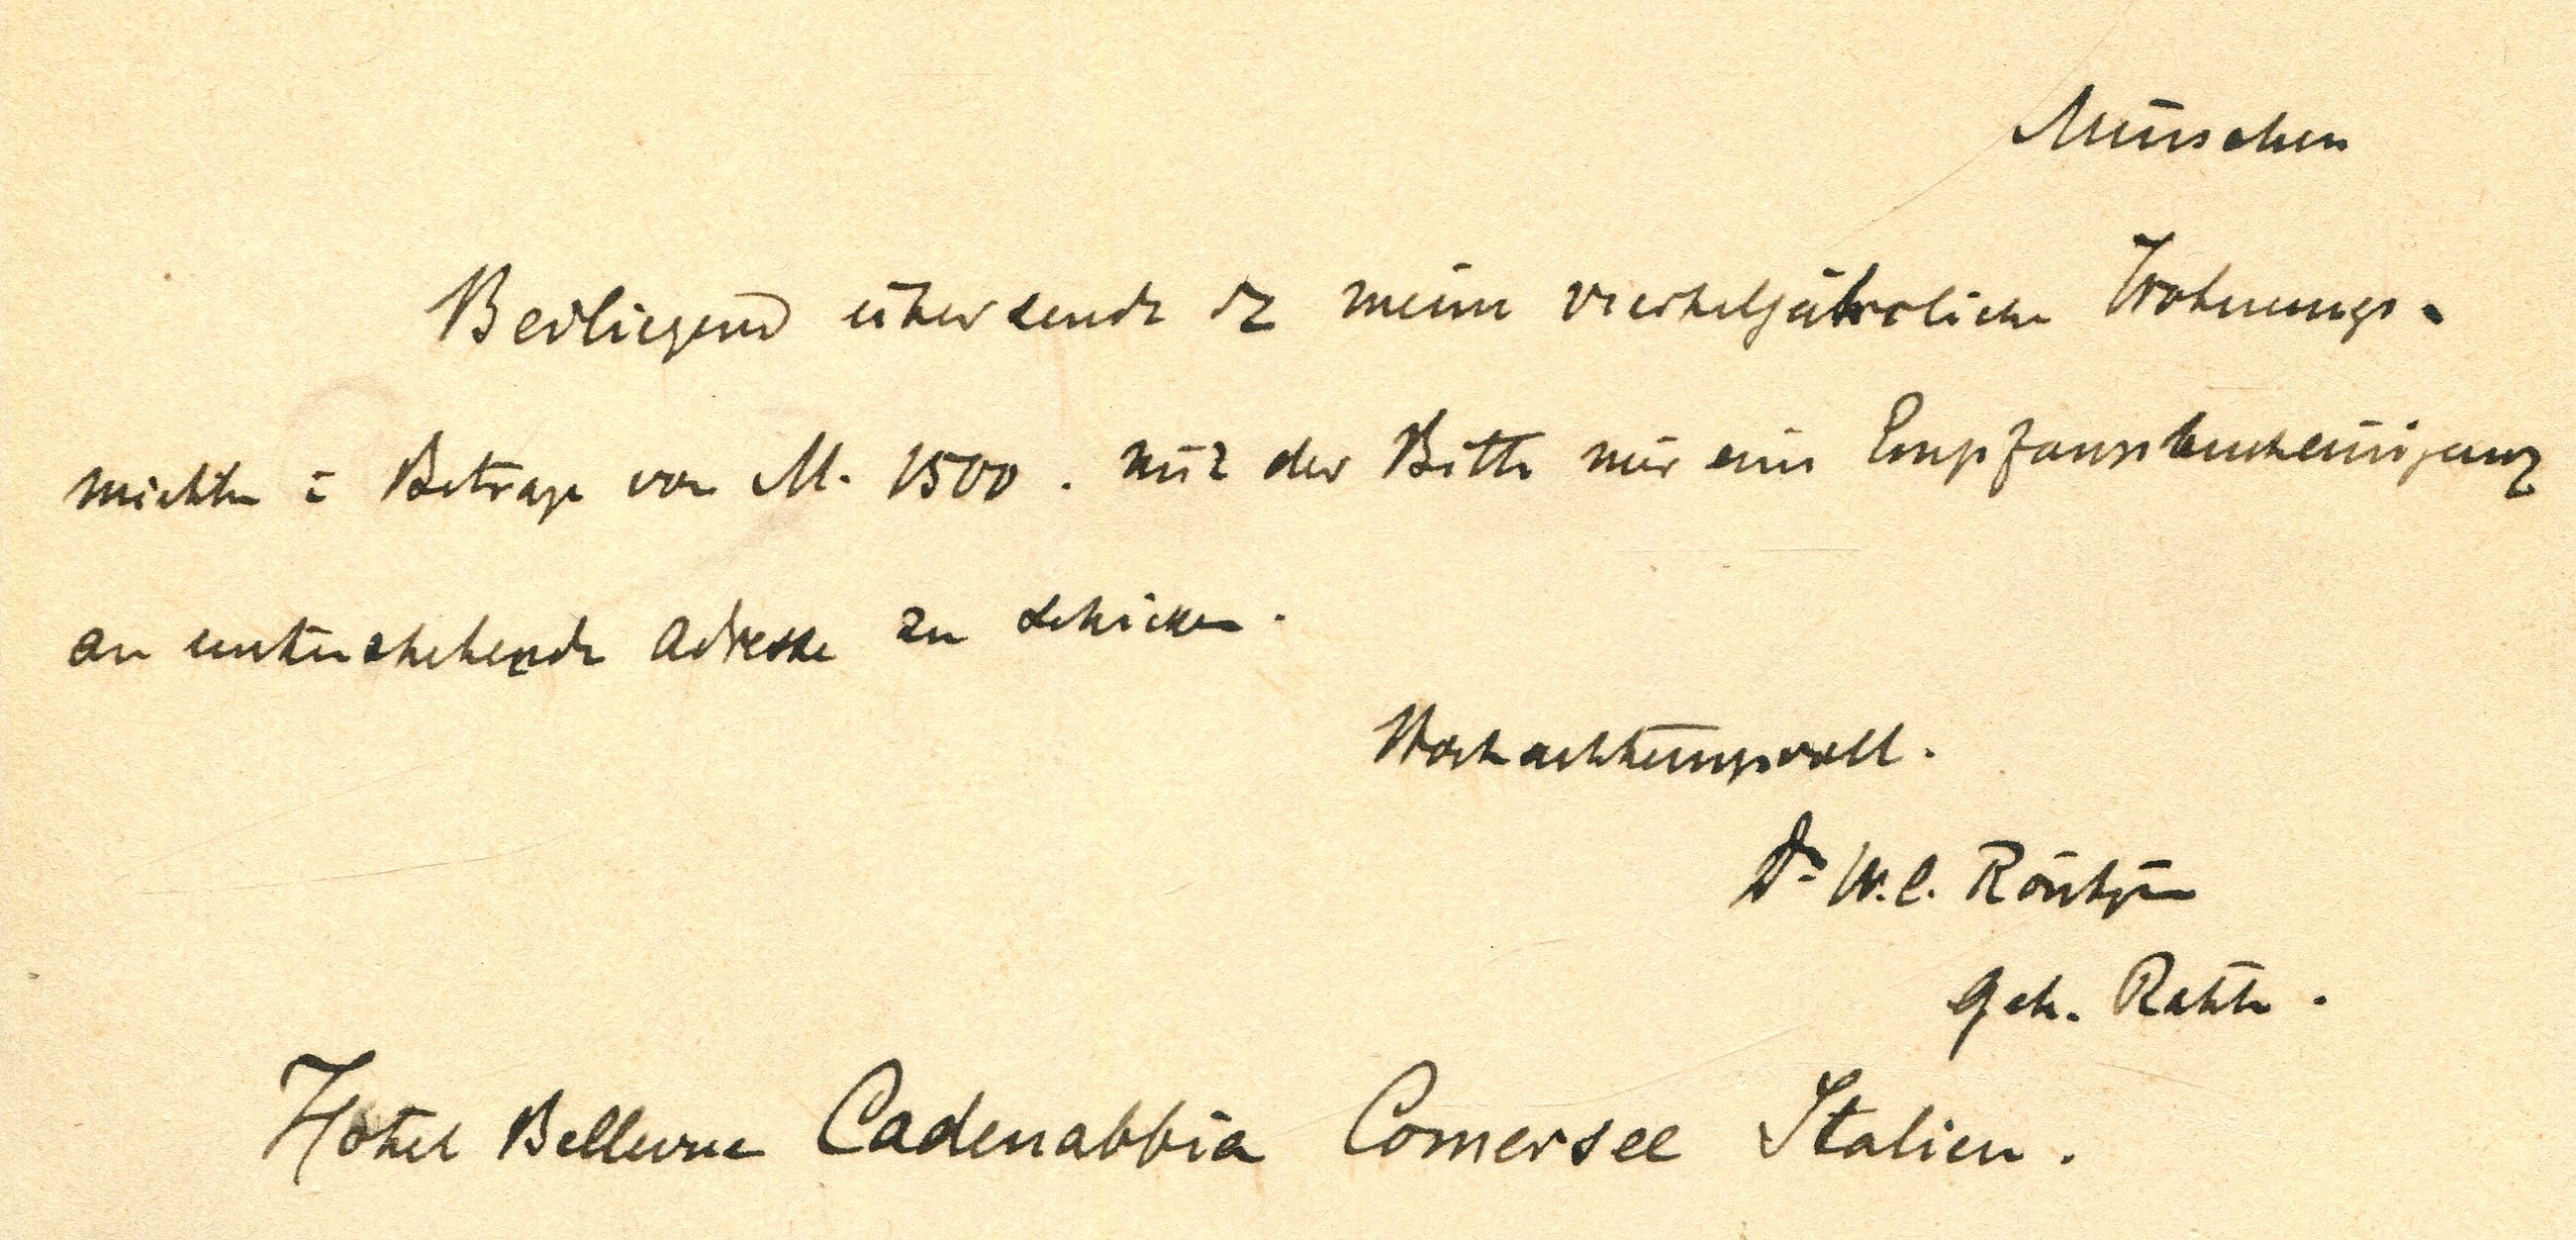 München
Beiliegend übersende ich meine vierteljährliche Wohnungs-
miethe im Betrage von M. 1500. mit der Bitte mir eine Empfangsbescheinigung
an untenstehende Adresse zu schicken.
Hochachtungsvoll.
Dr W. C. Röntgen
Geh. Rath.
Hotel Bellevue Cadenabbia Comersee Italien.